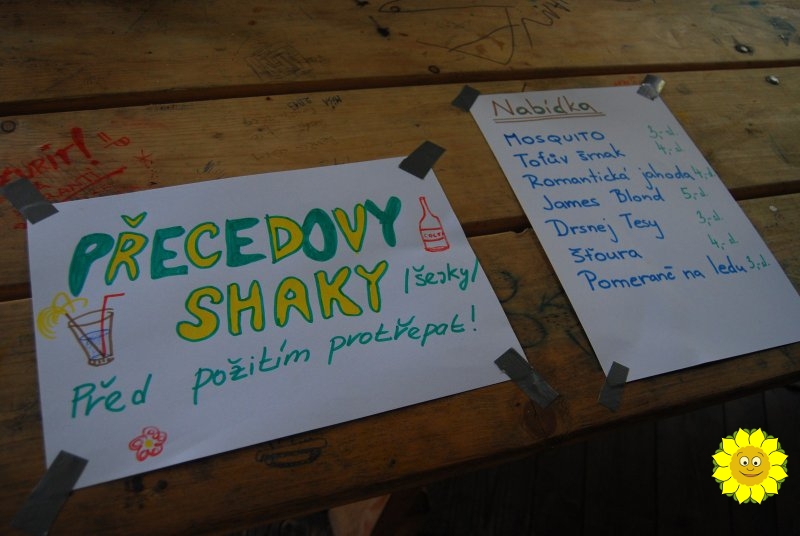 PŘECEDOVY
SHAKY /šejky/
Před požitím protřepat!
Nabídka
MOSQUITO 3,-d.
Tofův šmak 4,-d.
Romantická jahoda 4,-d.
James Blond 5,-d.
Drsnej Tesy 3,-d.
Šťoura 4,-d.
Pomeranč na ledu 3,-d.